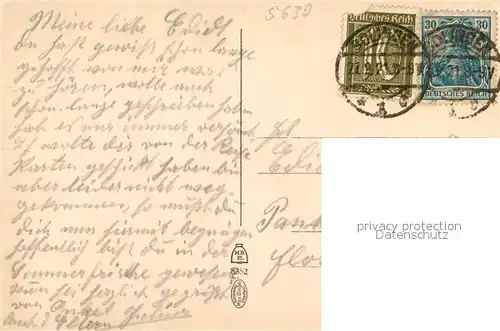 Meine liebe Edith
Du hast gewiß schon lange
gehofft von mir was
zu hören, wollte auch
schon lange geschrieben haben
hab es nur immer versäumt
Ich wollte dir von der Reise
Karten geschickt haben bin
aber leider nicht weg-
gekommen, so mußt du
dich nun hiermit begnügen
hoffentlich bist du in der
Sommerfrische gewesen
nun sei herzlich gegrüßt
von Onkel
Auch d Eltern
5630
Deutsches Reich
30 30
DEUTSCHES REICH
Edi
Pank
Flo
M.B.
H.
8352
privacy protection
Datenschutz